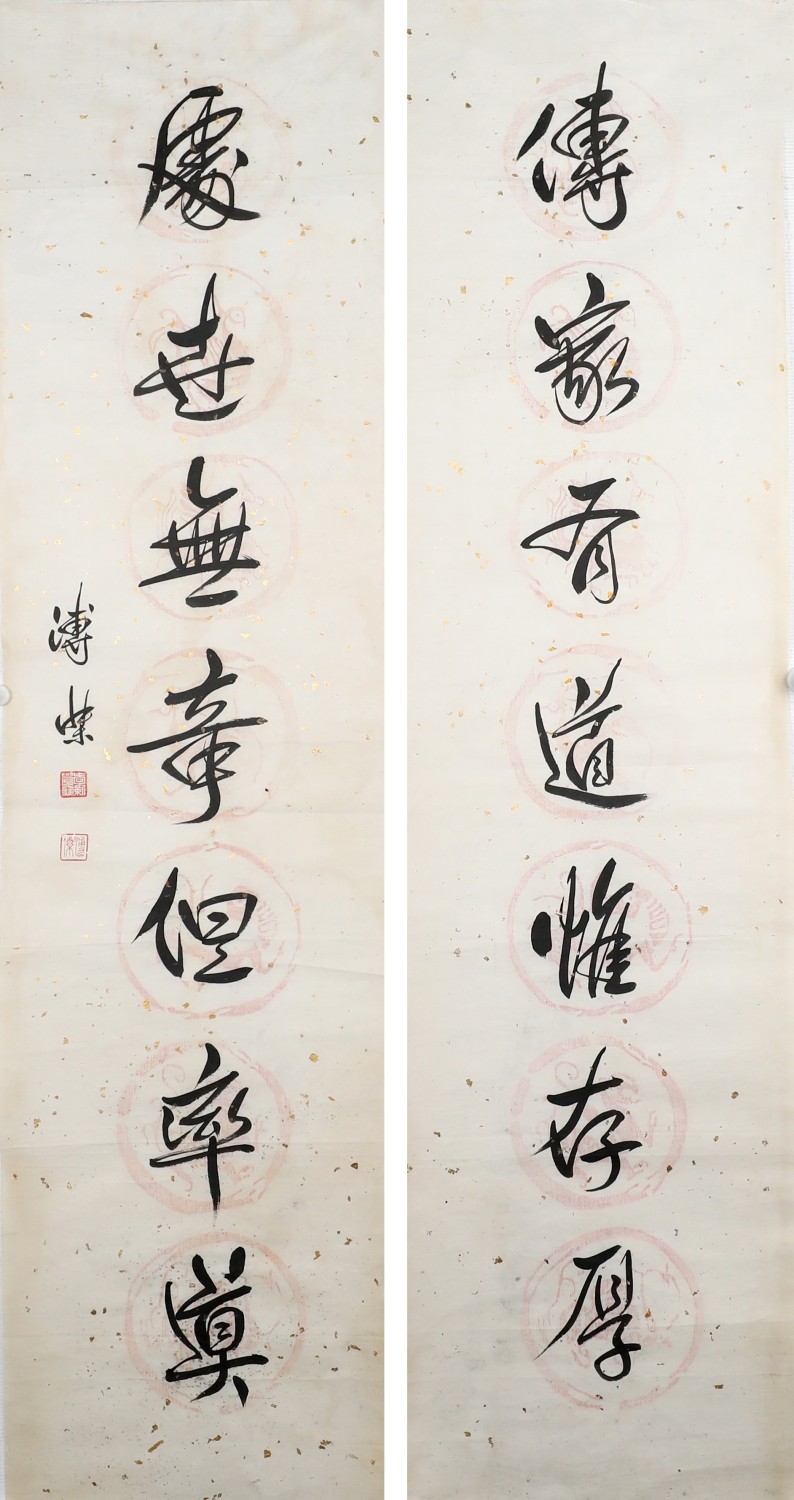 傳家有道惟存厚
處世無奇但率真
溥傑